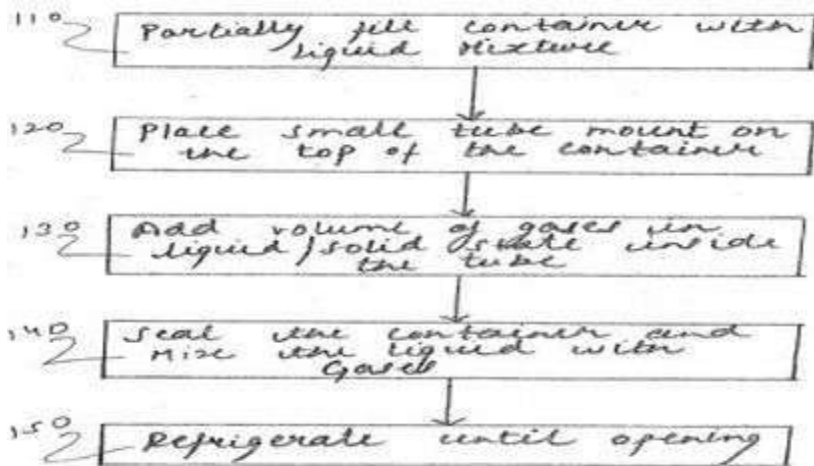 110
Partially fill container with
liquid Mixture
120
Place small tube mount on
the top of the container
130
Add volume of gases in
liquid/solid state inside
the tube
140
Seal the container and
Mix the liquid with
Gases
150
Refrigerate until opening